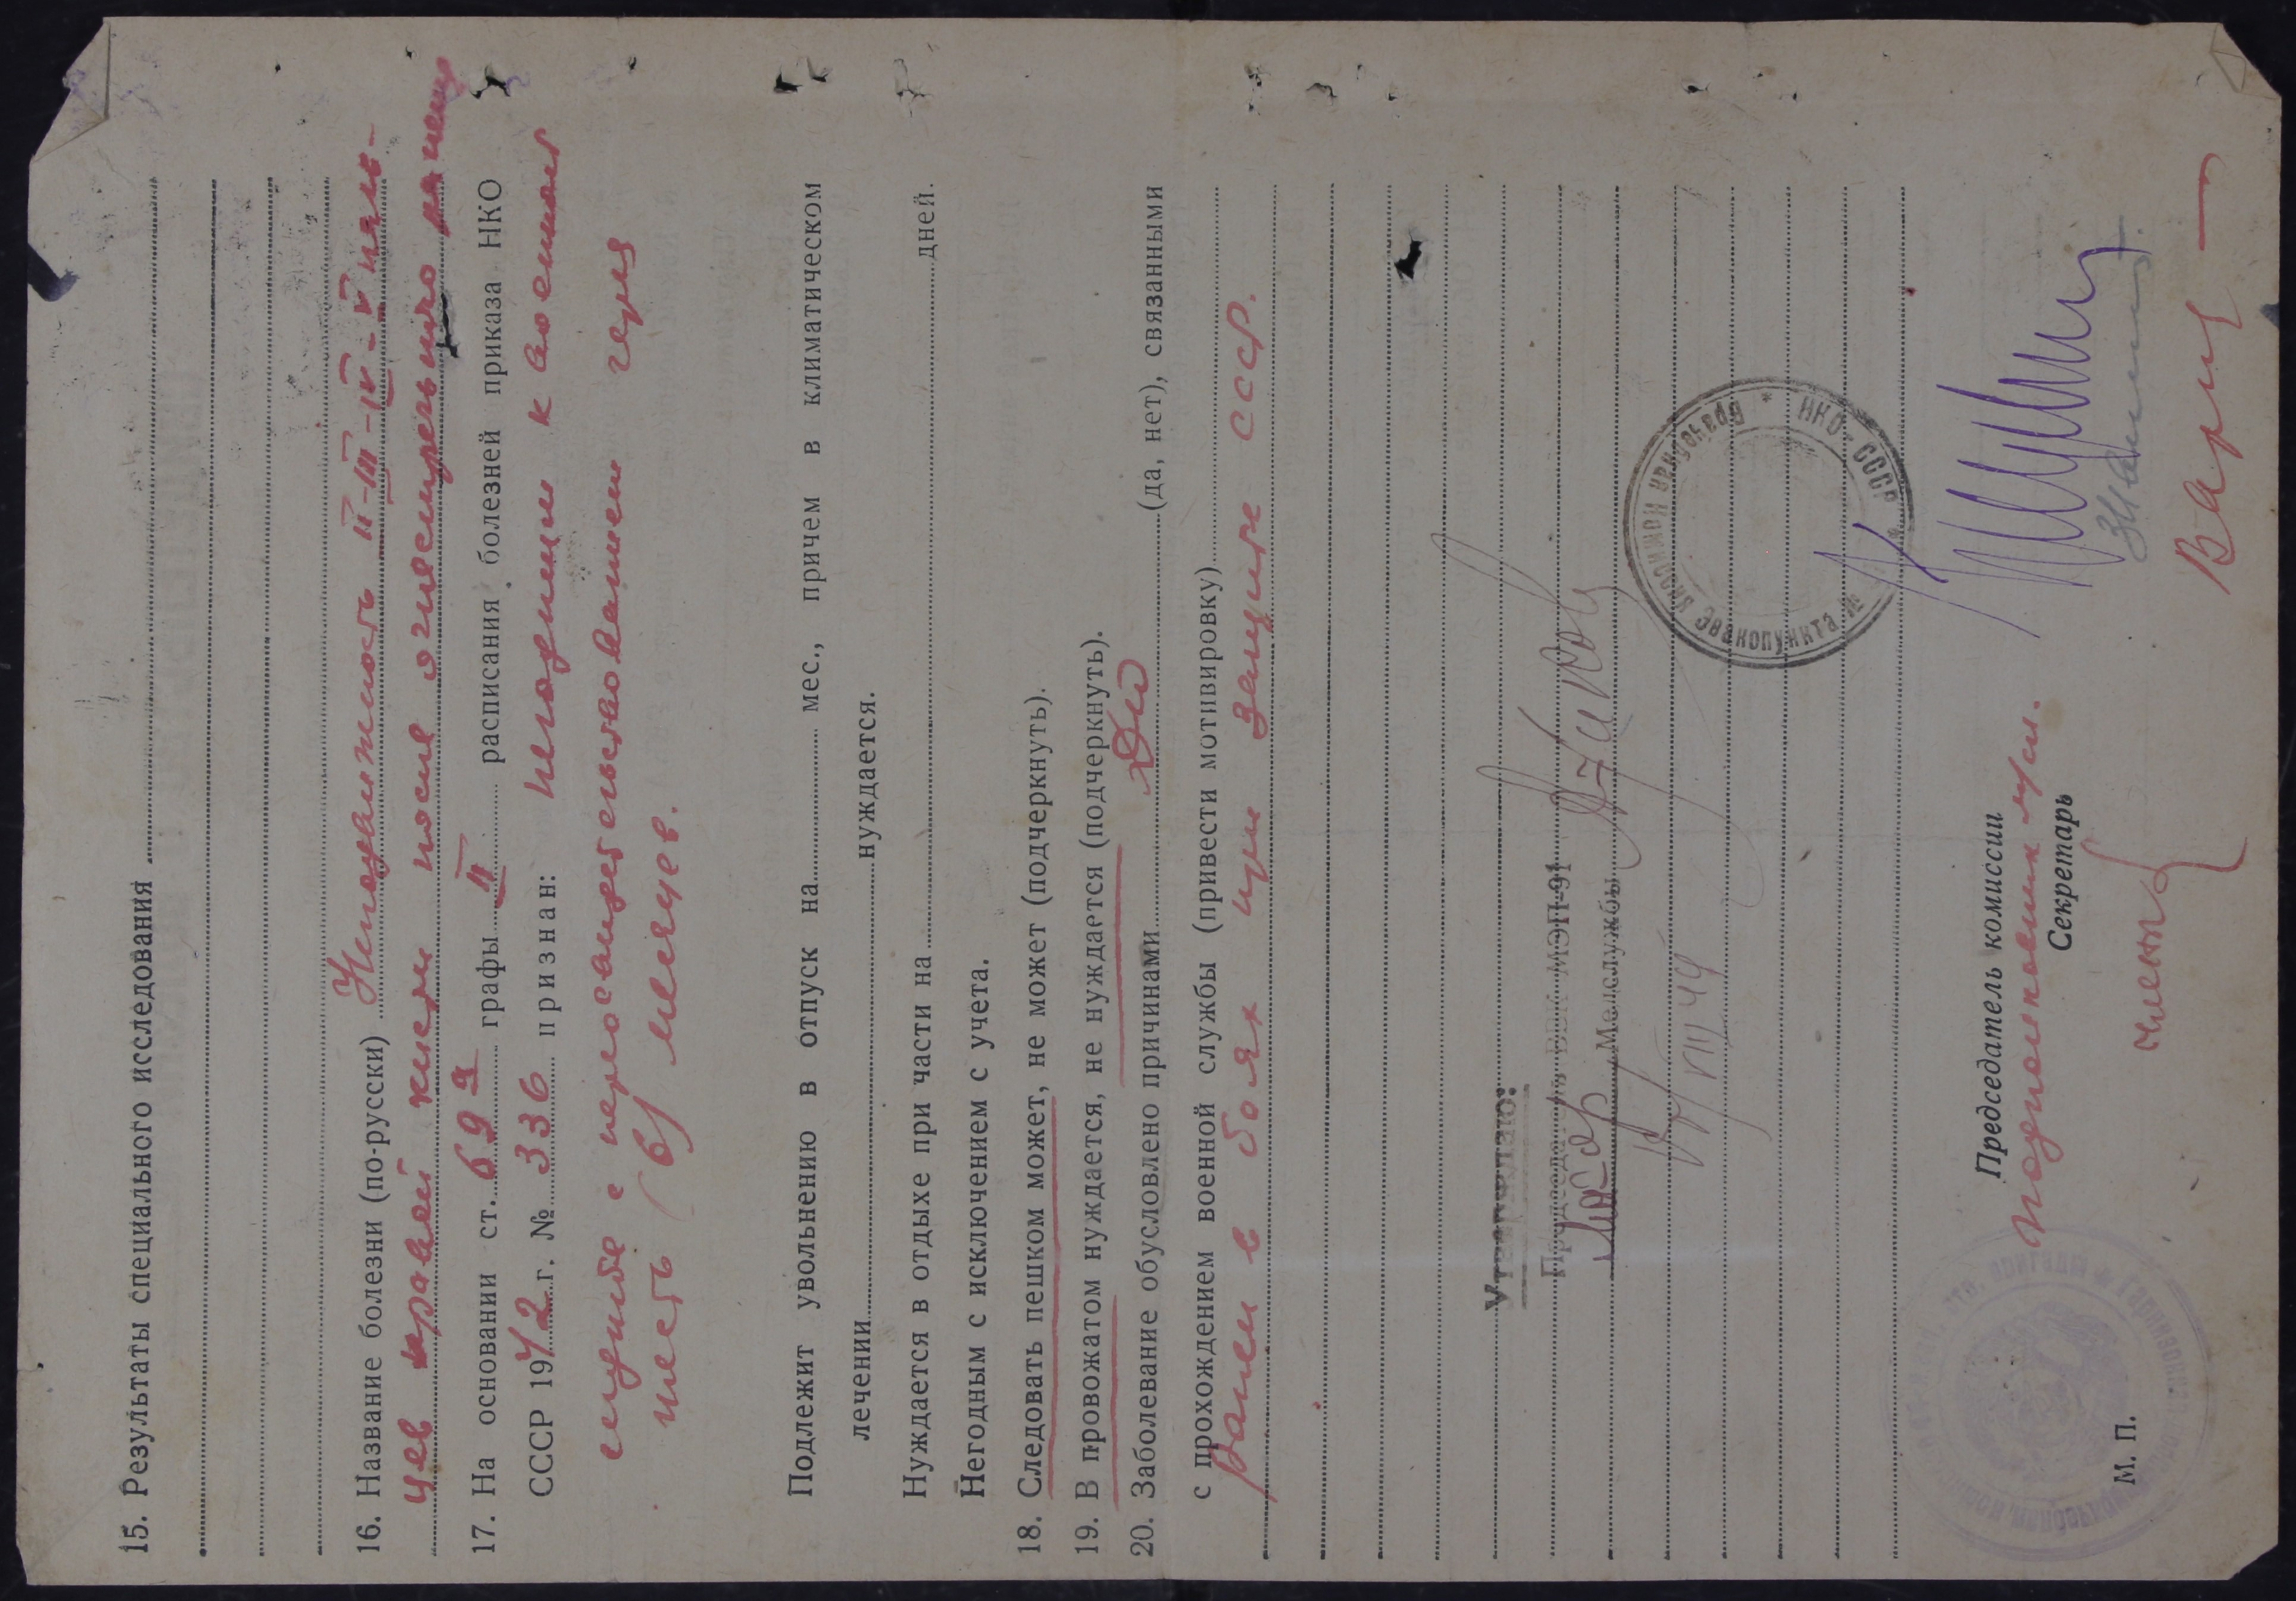 15. Результаты специального исследования
16. Название болезни (по-русски) Неподвижность II-III-IV-V паль-
цев правой кисти после огнестрельного ранения
17. На основании ст. 69 графы II расписания болезней приказа НКО
СССР 1942 г. № 336 признан: негодным к военной
службе с переосвидетельствованием через
шесть (6) месяцев.
Подлежит увольнению в отпуск на мес., причем в климатическом
лечении нуждается.
Нуждается в отдыхе при части на дней.
Негодным с исключением с учета.
18. Следовать пешком может, не может (подчеркнуть).
19. В провожатом нуждается, не нуждается (подчеркнуть).
20. Заболевание обусловлено причинами Да (да, нет), связанными
с прохождением военной службы (привести мотивировку)
ранен в боях при защите СССР.
Утверждаю:
Председатель ВВК МЭП-91
Майор Медслужбы
VIII 44
Врачебная комиссия Эвакопункта № * НКО-СССР *
Председатель комиссии
Подполковник м/сл.
Секретарь
члены
М. П.